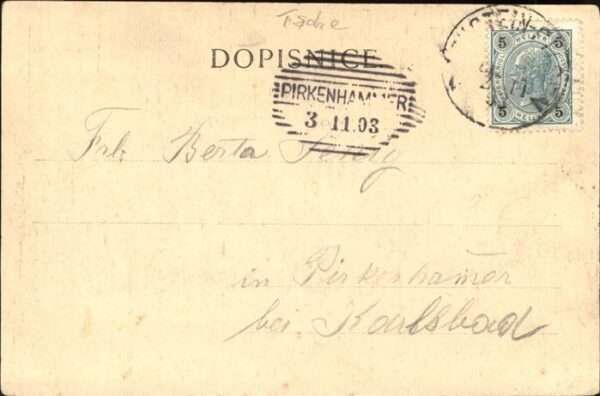 DOPISNICE
PIRKENHAMMER
3 11.03
5 5
5 5
Frl. Berta
in Pirkenham̄er
bei Karlsbad